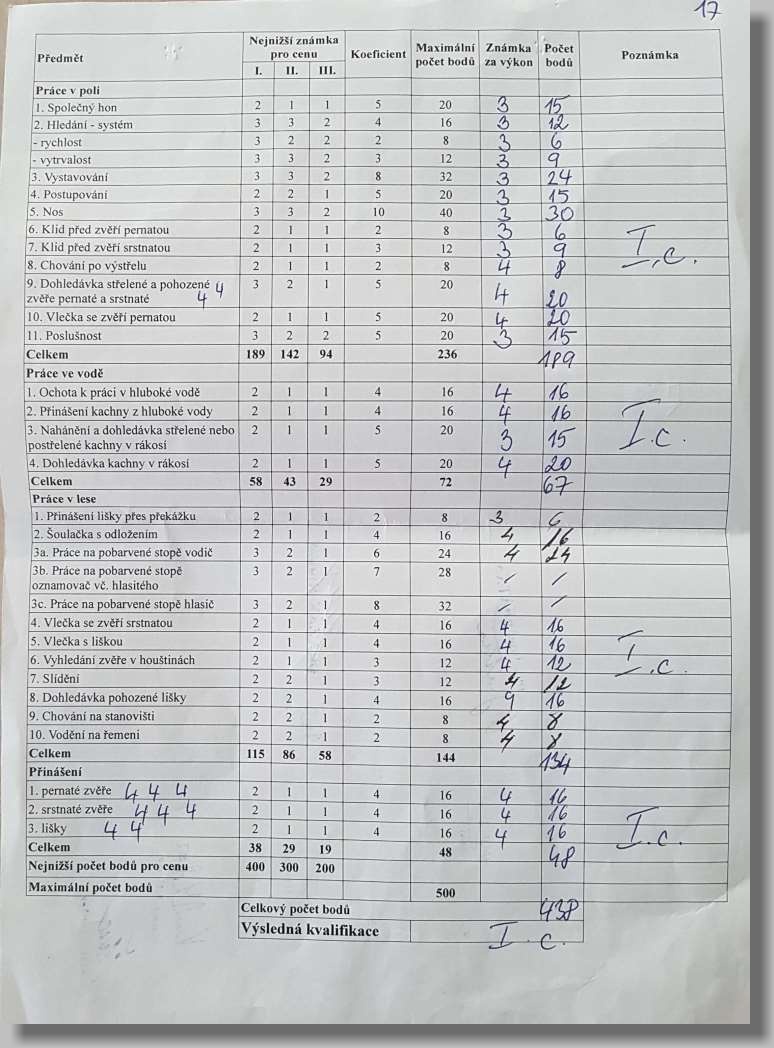 17
Předmět Nejnižší známka pro cenu Koeficient Maximální počet bodů Známka za výkon Počet bodů Poznámka
I. II. III.
Práce v poli
1. Společný hon 2 1 1 5 20 3 15
2. Hledání - systém 3 3 2 4 16 3 12
- rychlost 3 2 2 2 8 3 6
- vytrvalost 3 3 2 3 12 3 9
3. Vystavování 3 3 2 8 32 3 24
4. Postupování 2 2 1 5 20 3 15
5. Nos 3 3 2 10 40 3 30
6. Klid před zvěří pernatou 2 1 1 2 8 3 6 I.c.
7. Klid před zvěří srstnatou 2 1 1 3 12 3 9
8. Chování po výstřelu 2 1 1 2 8 4 8
9. Dohledávka střelené a pohozené 4 3 2 1 5 20 4 20
zvěře pernaté a srstnaté 4
10. Vlečka se zvěří pernatou 2 1 1 5 20 4 20
11. Poslušnost 3 2 2 5 20 3 15
Celkem 189 142 94 236 189
Práce ve vodě
1. Ochota k práci v hluboké vodě 2 1 1 4 16 4 16
2. Přinášení kachny z hluboké vody 2 1 1 4 16 4 16 I.c.
3. Nahánění a dohledávka střelené nebo 2 1 1 5 20 3 15
postřelené kachny v rákosí
4. Dohledávka kachny v rákosí 2 1 1 5 20 4 20
Celkem 58 43 29 72 67
Práce v lese
1. Přinášení lišky přes překážku 2 1 1 2 8 3 6
2. Šoulačka s odložením 2 1 1 4 16 4 16
3a. Práce na pobarvené stopě vodič 3 2 1 6 24 4 24
3b. Práce na pobarvené stopě 3 2 1 7 28 / /
oznamovač vč. hlasitého
3c. Práce na pobarvené stopě hlasič 3 2 1 8 32 / /
4. Vlečka se zvěří srstnatou 2 1 1 4 16 4 16
5. Vlečka s liškou 2 1 1 4 16 4 16 I.c.
6. Vyhledání zvěře v houštinách 2 1 1 3 12 4 12
7. Slídění 2 2 1 3 12 4 12
8. Dohledávka pohozené lišky 2 2 1 4 16 4 16
9. Chování na stanovišti 2 2 1 2 8 4 8
10. Vodění na řemeni 2 2 1 2 8 4 8
Celkem 115 86 58 144 134
Přinášení
1. pernaté zvěře 4 4 4 2 1 1 4 16 4 16
2. srstnaté zvěře 4 4 4 2 1 1 4 16 4 16
3. lišky 4 4 2 1 1 4 16 4 16 I.c.
Celkem 38 29 19 48 48
Nejnižší počet bodů pro cenu 400 300 200
Maximální počet bodů 500
Celkový počet bodů 438
Výsledná kvalifikace I. c.